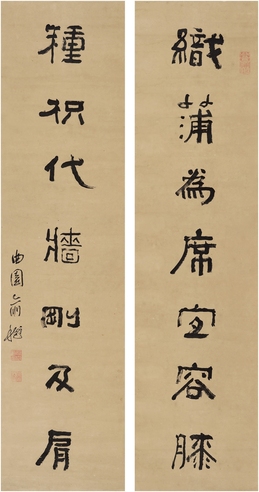 織蒲為席宜容膝
種枳代牆剛及肩
曲園俞樾